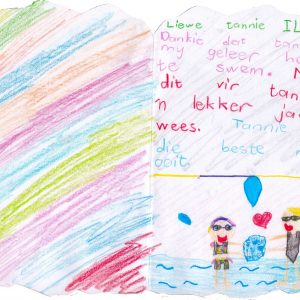 Liewe tannie IL
Dankie dat tan
my geleer he
te swem.
dit vir tan
'n lekker ja
wees. Tannie
die beste
ooit